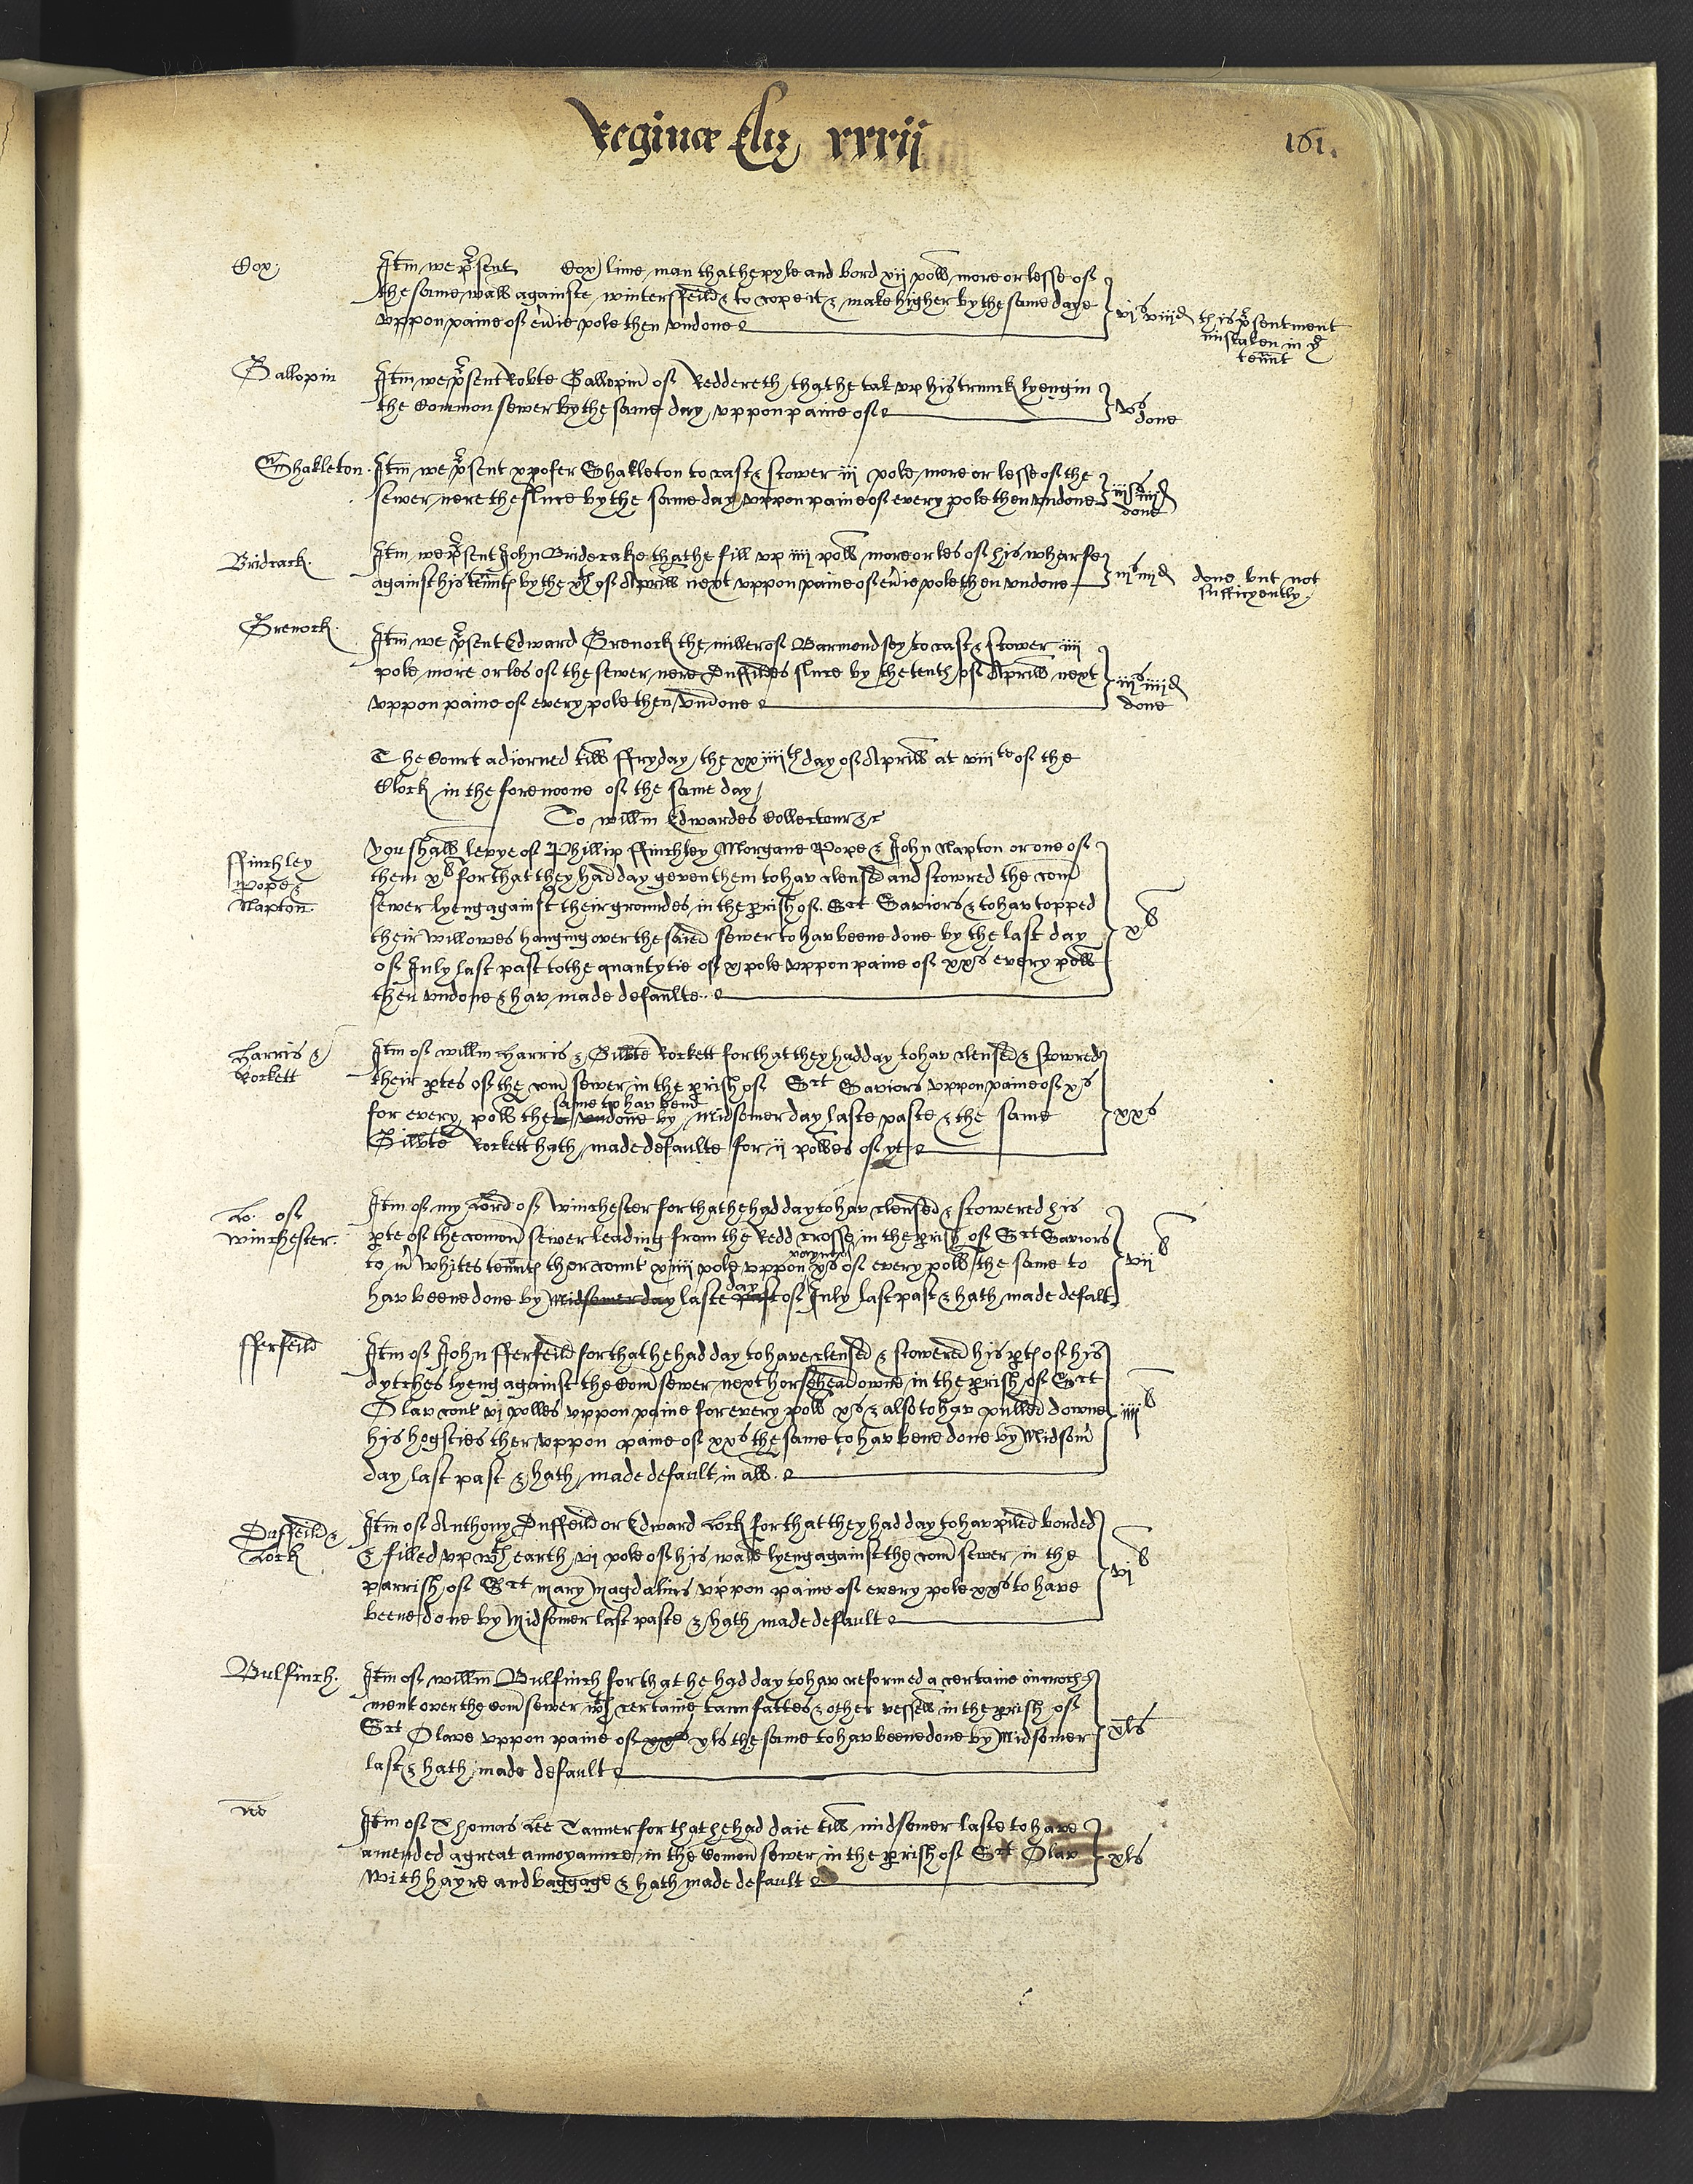 Reginæ Eliz xxxij
161.
Cox
Itm we p̱sent Cox lime man that he pyle and bord xij poll more or lesse of
the same wall againste winterffeild & to cope it & make higher by the same daye
vppon paine of eũie pole then vndone
vjs viijd
this p̱sentment
mistaken in ye
tennt
Gallopin
Itm we p̱sent Robte Gallopin of Reddereth that he tak vp his trunck lyeng in
the Common sewer by the same day vppon paine of
vs
done
Shakleton.
Itm we p̱sent xp̃ofer Shakleton to cast & scower iij pole more or lesse of the
sewer nere the sluce by the same day vppon paine of every pole then vndone
iijs iiijd
done
Bridcack.
Itm we p̱sent John Bridecake that he fill vp iiij poll more or les of his wharfe
against his tennts by the xth of Aprill next vppon paine of eũie pole then vndone
iijs iiijd
done but not
sufficyently.
Grenock.
Itm we p̱sent Edward Grenock the miller of Barmondsey to cast & scower iiij
pole more or les of the sewer nere Duffildes sluce by the tenth of Aprill next
vppon paine of every pole then vndone
iijs iiijd
done
The Court adiorned till ffryday the xxiiijth day of Aprill at viijte of the
Clock in the forenoone of the same day
To willm Edwardes Collectour &c
ffinchley
Pope &
Napton
You shall levye of Phillip ffinchley Morgane Pope & John Napton or one of
them xl for that they had day geven them to hav clensed and scowred the com̄
sewer lyeng against their groundes in the p̱rish of Sct Saviors & to hav topped
their willowes hanging over the saied sewer to hav beene done by the last day
of July last past to the quantytie of x pole vppon paine of xxs every poll
then vndone & hav made defaulte
xl
Harris &
Rockett
Itm of willm Harris & Gilbte Rockett for that they had day to hav clensed & scowred
their p̱tes of the com̄ sewer in the p̱rish of Sct Saviors vppon paine of xs
same to hav bene
for every poll the vndone by Midsomer day laste paste & the same
Gilbte Rockett hath made defaulte for ij polles of yt
xxs
Lo. of
winchester.
Itm of my Lord of Winchester for that he had day to hav clensed & scowered his
p̱te of the comon sewer leading from the Redd Crosse in the p̱rish of Sct Saviors
payne of
to mr Whites tennts ther cont xiiij pole vppon xs of every poll the same to
day
hav beene done by Midsomer day laste past of July last past & hath made defalt
vijl
fferfeild
Itm of John fferfeild for that he had day to have clensed & scowered his p̱te of his
dytches lyeng against the Com̄ sewer next horsheadowne in the p̱rish of Sct
Olav cont vj polles vppon paine for every poll xs & also to hav pulled downe
his hogsties ther vppon paine of xxs the same to hav bene done by Midsom̃
day last past & hath made default in all.
iiijl
Duffeild &
Lock
Itm of Anthony Duffeild or Edward Lock for that they had day to hav piled borded
& filled vp wth earth vj pole of his wall lyeng against the com̄ sewer in the
parrish of Sct mary magdalins vppon paine of every pole xxs to have
beene done by Midsomer last paste & hath made default
vjl
Bulfinch.
Itm of willm Bulfinch for that he had day to hav reformed a certaine incroch-
ment over the Com̄ sewer wth certaine tann fattes & other vessell in the p̱rish of
Sct Olave vppon paine of xxs xls the same to hav beene done by Midsomer
last & hath made default
xls
Itm of Thomas Lee Tanner for that he had daie till midsomer laste to have
amended a great annoyaunce in the Comon sewer in the p̱rish of Sct Olav
With hayre and baggage & hath made default
xls